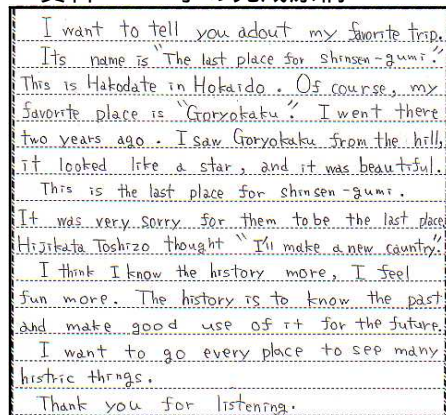 I want to tell you adout my favorite trip.
Its name is "The last place for shinsen-gumi."
This is Hakodate in Hokaido. Of course, my
favorite place is "Goryokaku". I went there
two years ago. I saw Goryokaku from the hill,
it looked like a star, and it was beautiful.
This is the last place for shinsen-gumi.
It was very sorry for them to be the last place
Hijikata Toshizo thought "I'll make a new cauntry."
I think I know the history more, I feel
fun more. The history is to know the past
and make good use of it for the future.
I want to go every place to see many
histric things.
Thank you for listening.